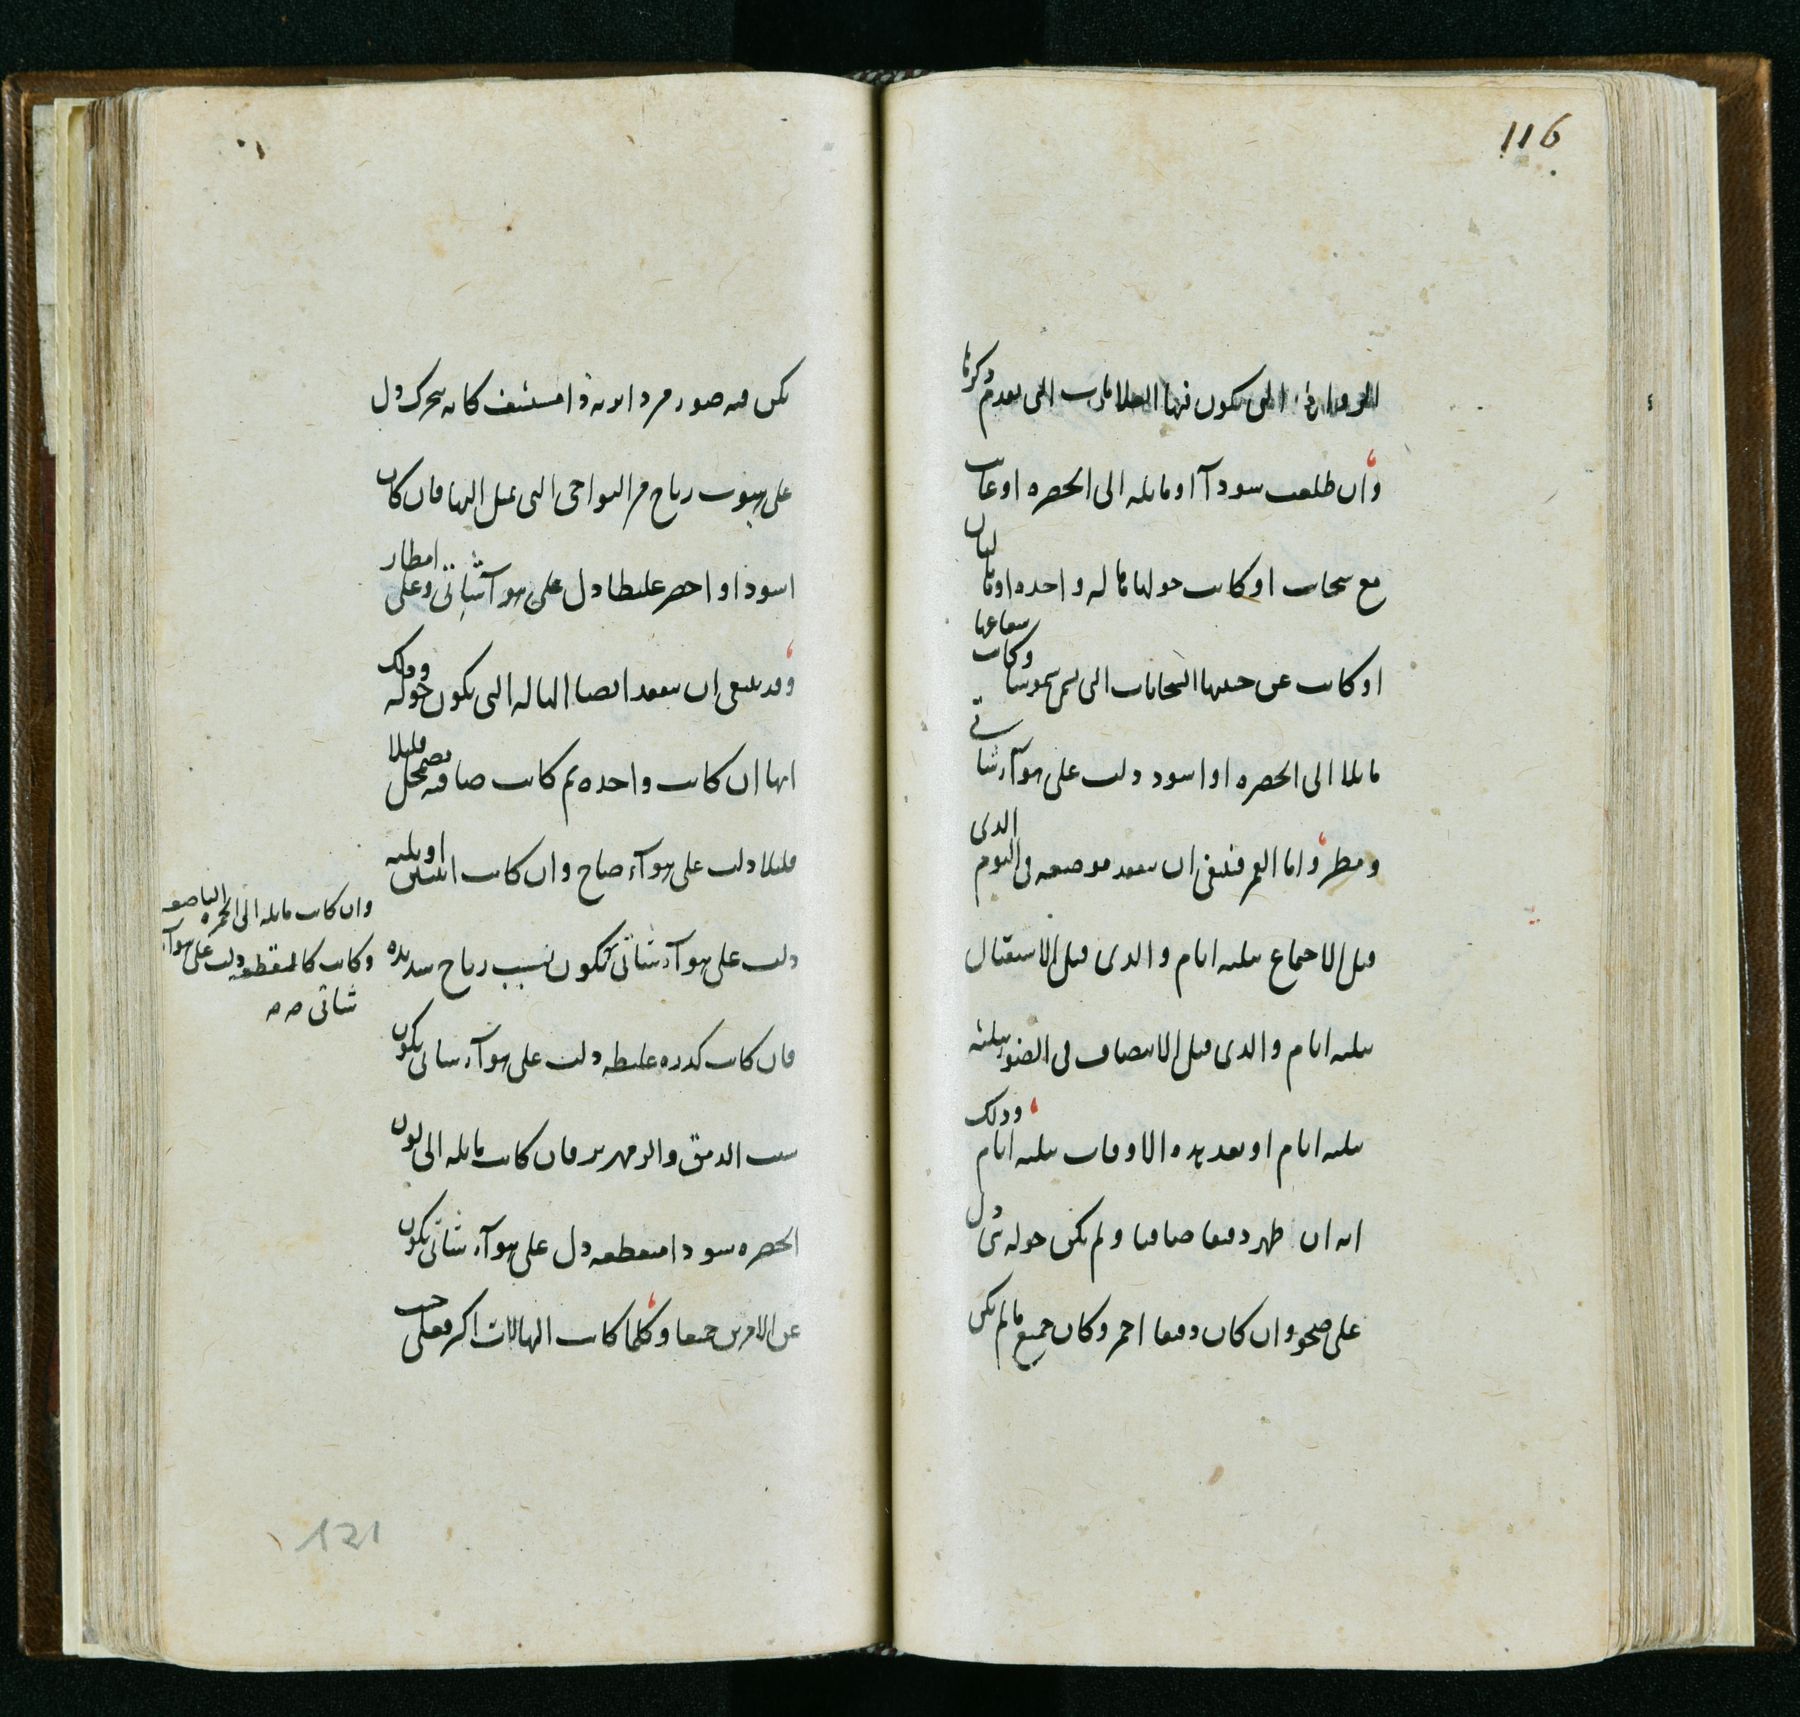 116
الزوايا التي يكون فيها العلامات التي تقدم ذكرنا
وان طلعت سوداء او مايلة الى الخضرة او غابت
مع سحاب او كانت حولها هالة واحدة او هالتان
او كانت عن جنبيها السحابات التي تسمى شموسا وكانت شعاعها
مايلا الى الخضرة او اسود دلت على هوآء شاتي
ومطر واما القمر فينبغي ان يتفقد موضعه في اليوم الذي
قبل الاجتماع بثلثة ايام والذي قبل الاستقبال
بثلثة ايام والذي قبل الانتصاف في الضو بثلثة
بثلثة ايام او بعد هذه الاوقات بثلثة ايام وذلك
انه ان ظهر دقيقا صافيا ولم يكن حوله شي دل
على صحو وان كان دقيقا احمر وكان جميع ما لم يكن
يكن فيه ضوء من دايرته مستشف كانه يتحرك دل
على هبوب رياح من النواحي التي يميل اليها فان كان
اسود او اخضر غليظا دل على هوآء شاتي وعلى امطار
وقد ينبغي ان يتفقد ايضا الهالة التي يكون حوله وذلك
انها ان كانت واحدة ثم كانت صافية تضمحل قليلا
قليلا دلت على هوآء صاح وان كانت اثنتين او ثلثة
دلت على هوآء شاتي يكون بسبب رياح شديدة
فان كانت كدرة غليظة دلت على هوآء شاتي يكون
بسبب الدمق والزمهرير فان كانت مايلة الى لون
الخضرة سودا متقطعة دل على هوآء شاتي يكون
عن الامرين جميعا وكلما كانت الهالات اكثر فعلى حسب
وان كانت مايلة الى الحمرة الناصعة
وكانت كالمتقطعة دلت على هوآء
شاتي
121